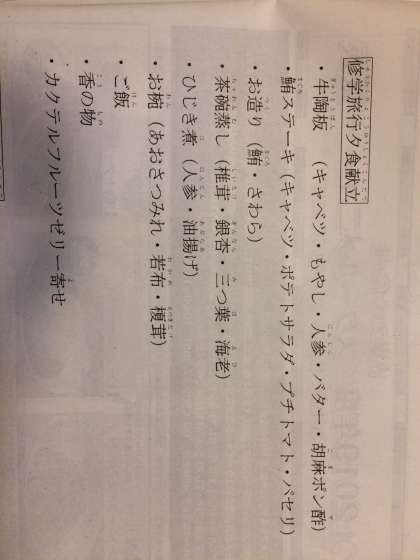 修学旅行夕食献立
・牛陶板 （キャベツ・もやし・人参・バター・胡麻ポン酢）
・鮪ステーキ（キャベツ・ポテトサラダ・プチトマト・パセリ）
・お造り（鮪・さわら）
・茶碗蒸し（椎茸・銀杏・三つ葉・海老）
・ひじき煮（人参・油揚げ）
・お椀（あおさつみれ・若布・榎茸）
・ご飯
・香の物
・カクテルフルーツゼリー寄せ